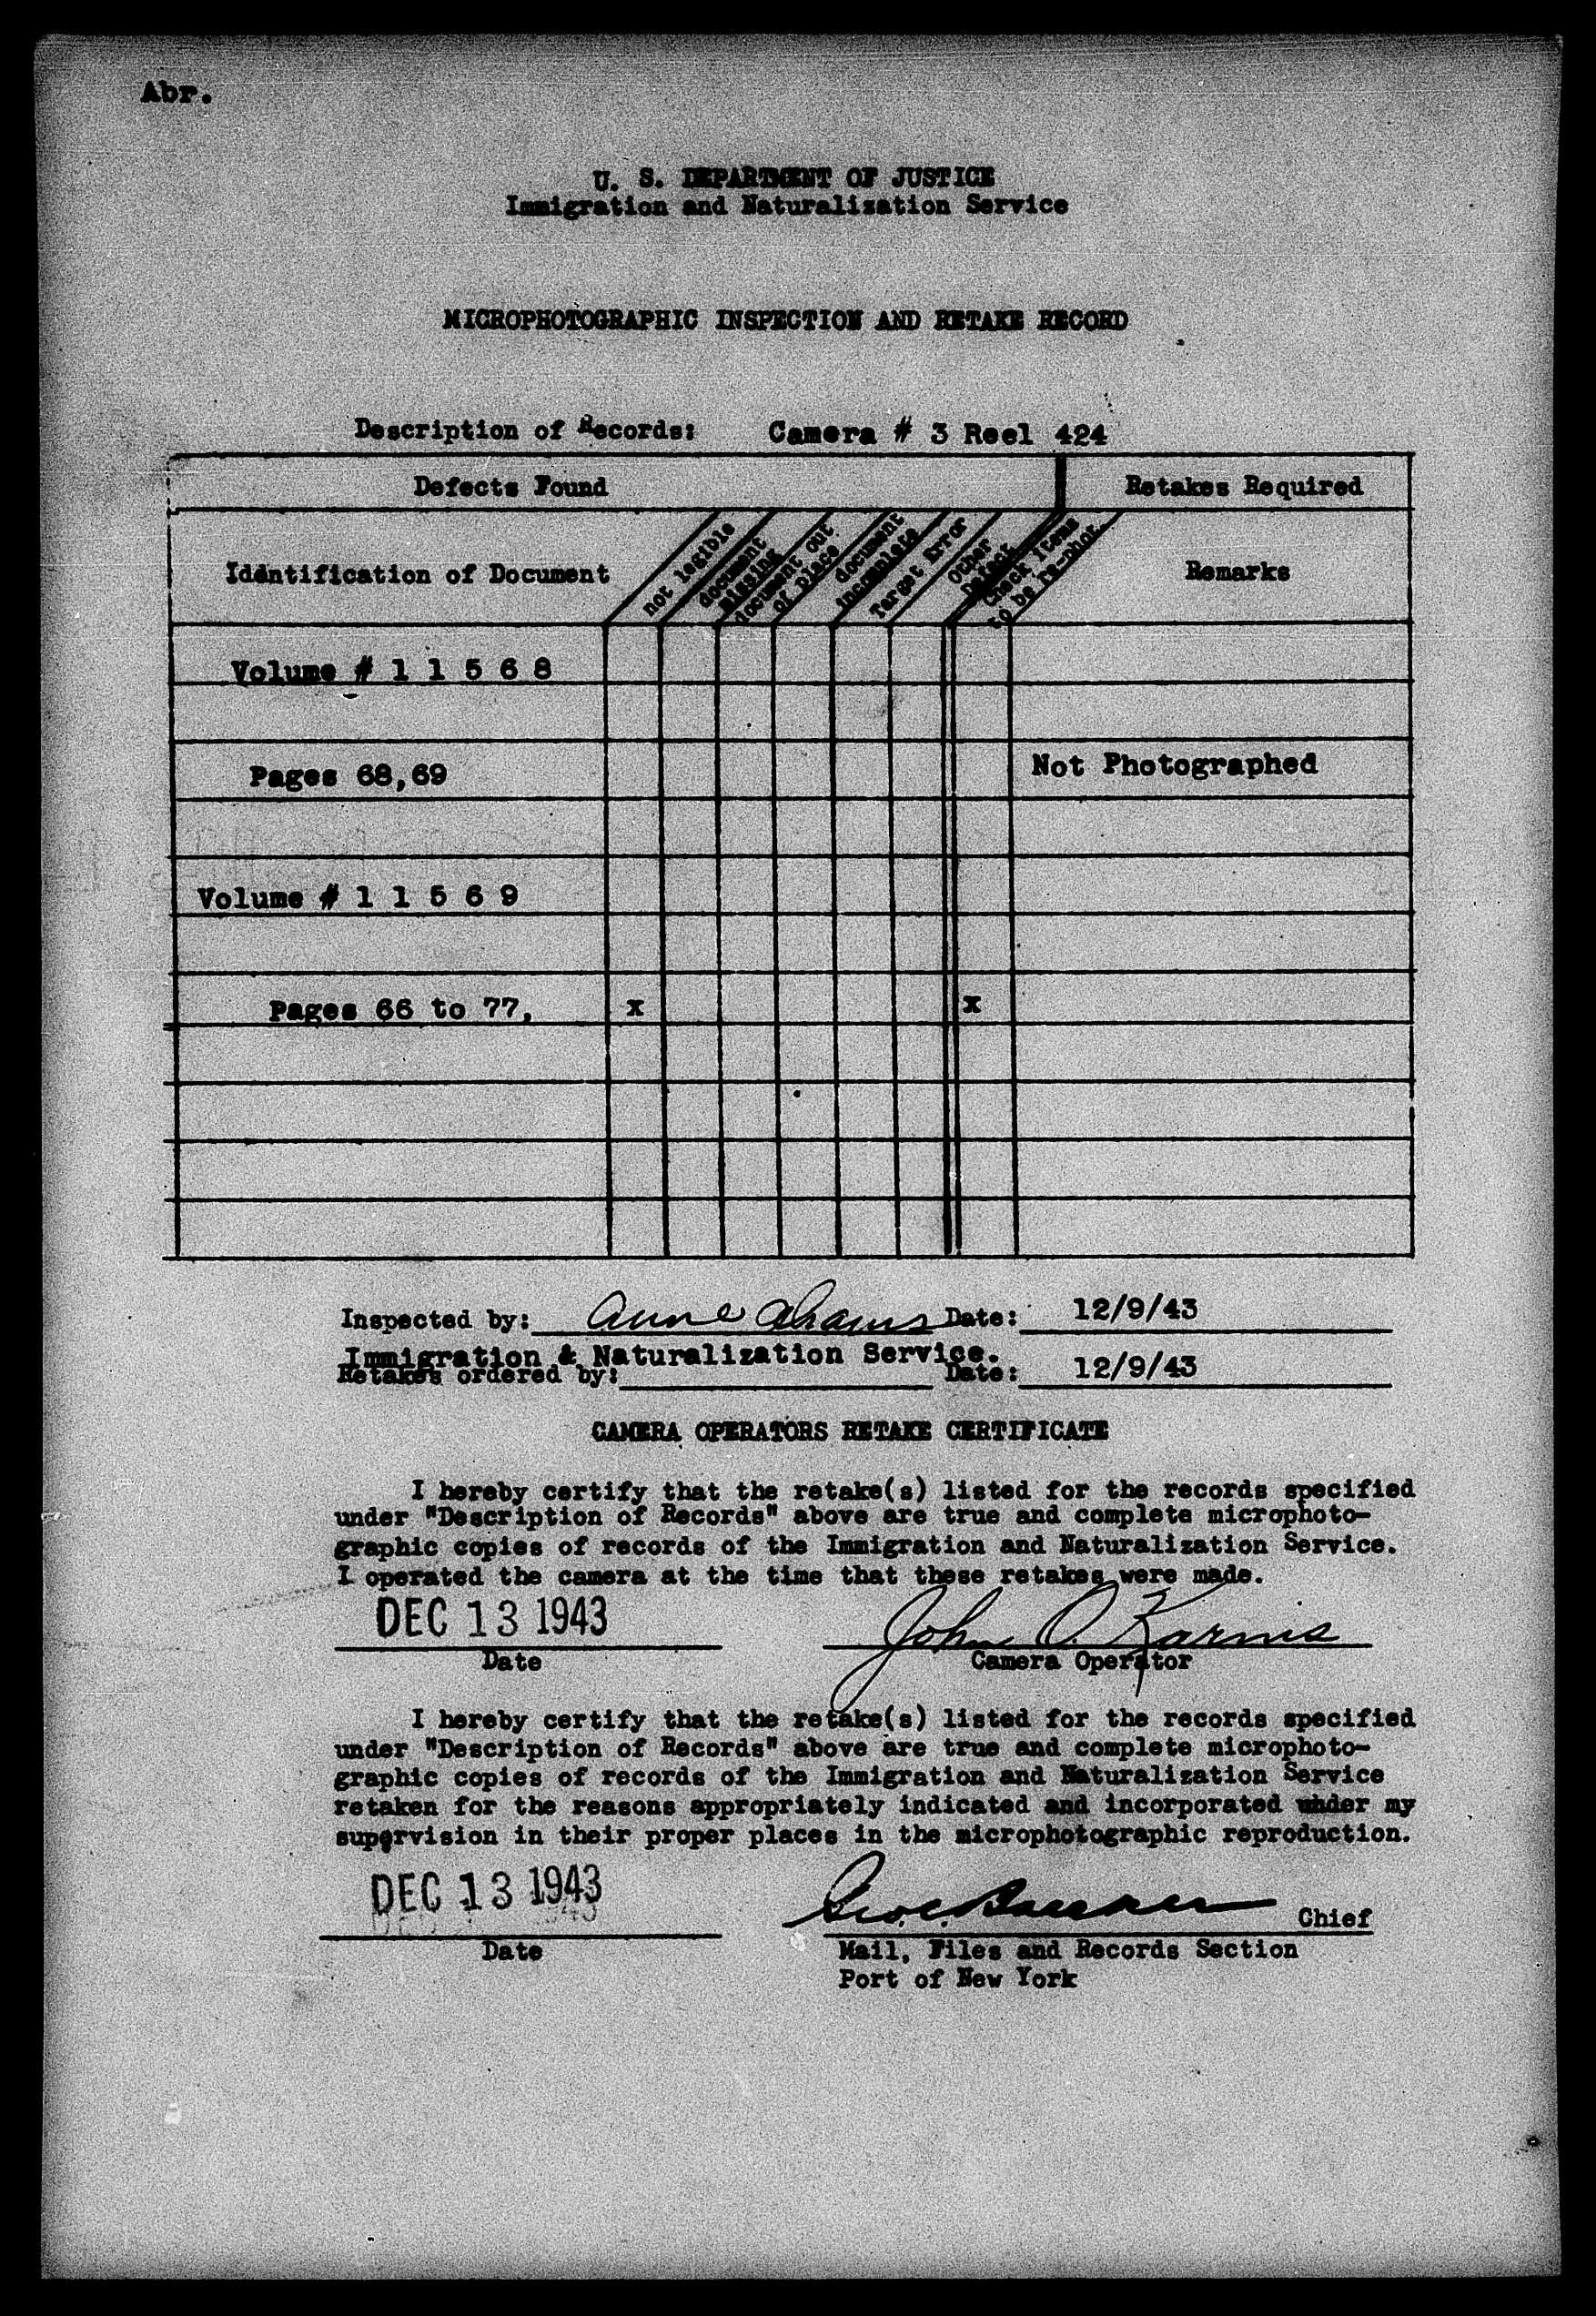 Abr.
U. S. DEPARTMENT OF JUSTICE
Immigration and Naturalization Service
MICROPHOTOGRAPHIC INSPECTION AND RETAKE RECORD
Description of Records: Camera # 3 Reel 424
Defects Found Retakes Required
Identification of Document
not legible
document missing
document out of place
document incomplete
Target Error
Other Defect
Check items to be re-phot.
Remarks
Volume # 1 1 5 6 8
Pages 68,69 Not Photographed
Volume # 1 1 5 6 9
Pages 66 to 77, x x
Inspected by: Anne Date: 12/9/43
Immigration & Naturalization Service.
Retakes ordered by: Date: 12/9/43
CAMERA OPERATORS RETAKE CERTIFICATE
I hereby certify that the retake(s) listed for the records specified
under "Description of Records" above are true and complete microphoto-
graphic copies of records of the Immigration and Naturalization Service.
I operated the camera at the time that these retakes were made.
DEC 13 1943 John O. Karnis
Date Camera Operator
I hereby certify that the retake(s) listed for the records specified
under "Description of Records" above are true and complete microphoto-
graphic copies of records of the Immigration and Naturalization Service
retaken for the reasons appropriately indicated and incorporated under my
supervision in their proper places in the microphotographic reproduction.
DEC 13 1943 Chief
Date Mail, Files and Records Section
Port of New York